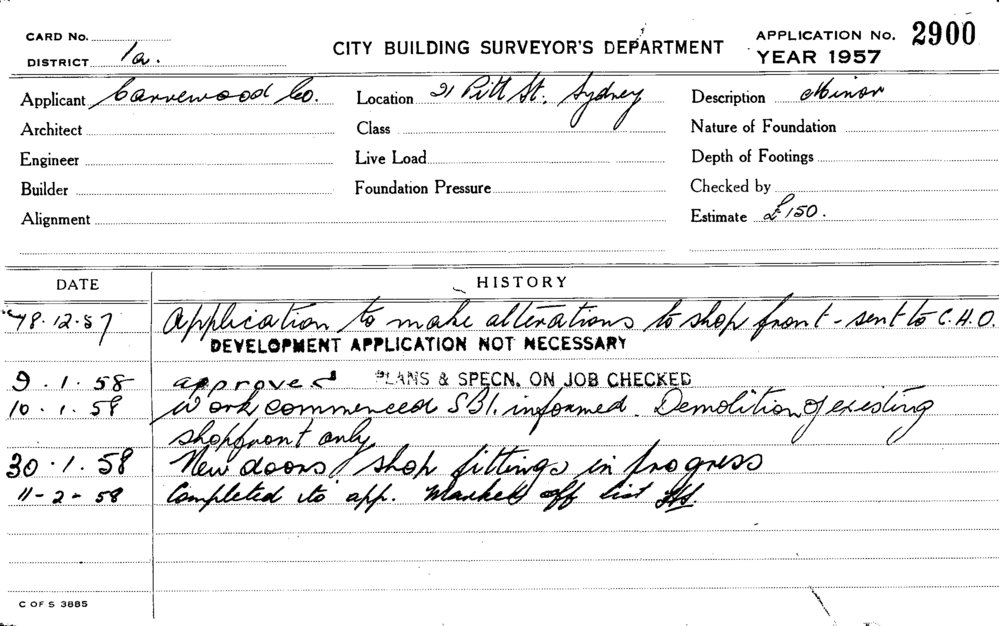 CARD No.
DISTRICT 1a.
CITY BUILDING SURVEYOR'S DEPARTMENT
APPLICATION No. 2900
YEAR 1957
Applicant Carrewood Co. Location 21 Pitt St. Sydney Description Minor
Architect Class Nature of Foundation
Engineer Live Load Depth of Footings
Builder Foundation Pressure Checked by
Alignment Estimate £150.
DATE HISTORY
18.12.57 Application to make alterations to shop front - sent to C.H.O.
DEVELOPMENT APPLICATION NOT NECESSARY
9.1.58 approved PLANS & SPECN. ON JOB CHECKED
10.1.58 Work commenced SBI. informed. Demolition of existing
shopfront only.
30.1.58 New doors shop fittings in progress
11-2-58 Completed to app. Marked off list
C OF S 3885